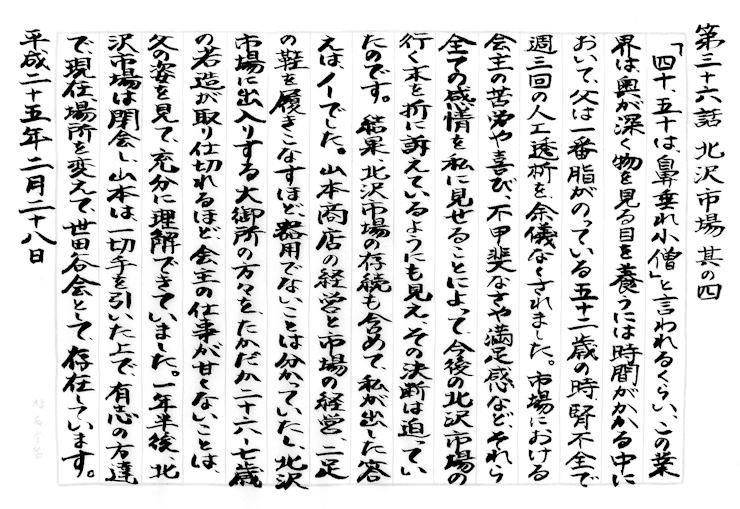 第三十六話 北沢市場 其の四
「四十、五十は、鼻垂れ小僧」と言われるくらい、この業
界は奥が深く物を見る目を養うには時間がかかる中に
おいて、父は一番脂がのっている五十二歳の時腎不全で
週三回の人工透析を、余儀なくされました。市場における
会主の苦労や喜び、不甲斐なさや満足感など、それら
全ての感情を私に見せることによって、今後の北沢市場の
行く末を折に訴えているようにも見え、その決断は迫ってい
たのです。結果、北沢市場の存続も含めて、私が出した答
えは、ノーでした。山本商店の経営と市場の経営、二足
の鞋を履きこなすほど、器用でないことは分かっていたし、北沢
市場に出入りする大御所の方々を、たかだか二十六〜七歳
の若造が取り仕切れるほど、会主の仕事が甘くないことは、
父の姿を見て、充分に理解できていました。一年半後、北
沢市場は閉会し、山本は、一切手を引いた上で、有志の方達
で、現在場所を変えて、世田谷会として、存在しています。
平成二十五年二月二十八日